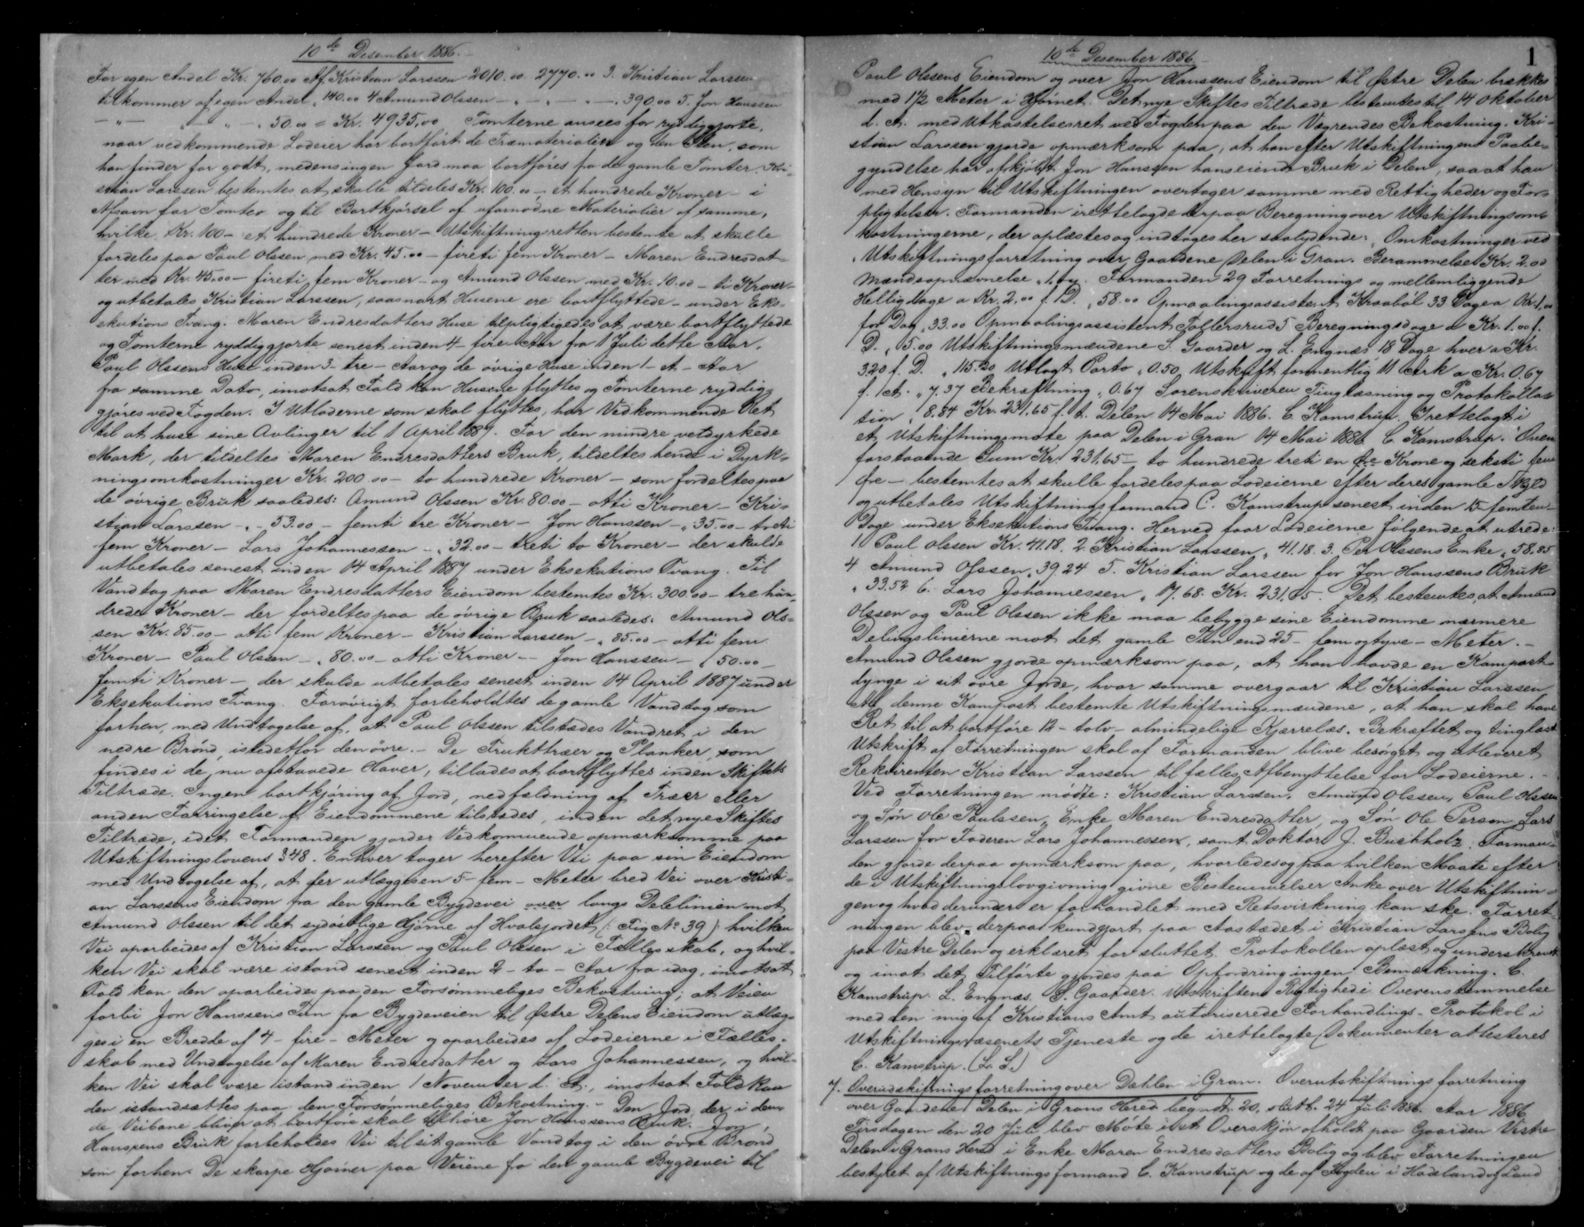 10de Desember 1886.
For egen Andel Kr. 760.00 Af Kristian Larssen 2010.00 2770.00 3. Kristian Larssen
tilkommer af egen Andel „ 140.00 4 Amund Olssen – „ – „ – 390.00 5. Jon Hanssen
– „ – „ – „ – 50.00 = Kr. 4935,00 Tomterne ansees for ryddiggjorte,
naar vedkommende Lodeier har bortført de Træmaterialier og den Sten, som
han finder for godt, medens ingen Jord maa bortføres fra de gamle Tomter. Kri-
stian Larssen bestemtes at skulle tildeles Kr. 100.00 – et hundrede Kroner – i
Afsavn for Tomter og til Bortkjørsel af ufornødne Materialier af samme,
hvilke Kr. 100 – et hundrede Kroner – Utskiftningsretten bestemte at skulle
fordeles paa Paul Olssen med Kr. 45.00 – fireti fem Kroner – Maren Endresdat-
ter med Kr. 45.00 – fireti fem Kroner – og Amund Olssen med Kr. 10.00 – ti Kroner –
og utbetales Kristian Larssen, saasnart Husene ere bortflyttede – under Ekse-
kutions Tvang. Maren Endresdatters Huse tilpligtigedes at være bortflyttede
og Tomterne ryddiggjorte senest inden 4 – fire – Aar fra 1 Juli dette Aar.
Paul Olssens Huse inden 3 – tre – Aar og de øvrige Huse inden 1 – et – Aar
fra samme Dato, imotsat Fald kan Husene flyttes og Tomterne ryddig-
gjøres ved Fogden. I Utloderne som skal flyttes, har Vedkommende Ret
til at huse sine Avlinger til 1 April 1887. For den mindre vetdyrkede
Mark, der tildeltes Maren Endresdatters Bruk, tildeltes hende i Dyrk-
ningsomkostninger Kr. 200.00 – to hundrede Kroner – som fordeltes paa
de øvrige Bruk saaledes: Amund Olssen Kr. 80.00 – otti Kroner – Kri-
stian Larssen – „ – 53.00 – femti tre Kroner – Jon Hanssen – „ 35.00 – treti
fem Kroner – Lars Johannessen – „ 32.00 – treti to Kroner – der skulde
utbetales senest inden 14 April 1887 under Eksekutions Tvang. Til
Vandtag paa Maren Endresdatters Eiendom bestemtes Kr. 300.00 – tre hun-
drede Kroner – der fordeltes paa de øvrige Bruk saaledes: Amund Ols-
sen Kr. 85.00 – otti fem Kroner – Kristian Larssen – „ 85.00 – otti fem
Kroner – Paul Olssen – „ 80.00 – otti Kroner – Jon Hanssen – „ 50.00 –
femti Kroner – der skulde utbetales senest inden 14 April 1887 under
Eksekutions Tvang. Forøvrigt forbeholdtes de gamle Vandtag som
forhen, med Undtagelse af, at Paul Olssen tilstades Vandret i den
nedre Brønd, istedetfor den øvre. – De Frukttræer og Planker, som
findes i de, nu afstaaede Haver, tillades at bortflyttes inden Skiftets
Tiltræde. Ingen bortkjøring af Jord, nedfældning af Træer eller
anden Forringelse af Eiendommene tilstedes, inden det nye Skiftes
Tiltræde, idet Formanden gjorde Vedkommende opmærksomme paa
Utskiftningslovens § 48. Enhver tager herefter Vei paa sin Eiendom
med Undtagelse af, at der utlægges en 5 – fem – Meter bred Vei over Kristi-
an Larssens Eiendom fra den gamle Bygdevei over langs Delelinien mot
Amund Olssen til det sydøstlige Hjørne af Hvalsjordet (: Fig No 39 ) hvilken
Vei oparbeides af Kristian Larssen og Paul Olssen i Fællesskab, og hvil-
ken Vei skal være istand senest inden 2 – to – Aar fra idag, imotsat
Fald kan den oparbeides paa den Forsømmeliges Bekostning; at Veien
forbi Jon Hanssens Tun fra Bygdeveien til Østre Delens Eiendom utlæg-
ges i en Bredde af 4 – fire – Meter og oparbeides af Lodeierne i Fælles-
skab med Undtagelse af Maren Endresdatter og Lars Johannessen, og hvil-
ken Vei skal være istand inden 1 November d. A., imotsat Fald kan
den istandsættes paa den Forsømmeliges Bekostning. – Den Jord, der i den-
de Veibane bliver at bortføre skal tilhøre Jon Hanssens Bruk. Jon
Hanssens Bruk forbeholdes Vei til sit gamle Vandtag i den øvre Brønd
som forhen. De skarpe Hjørner paa Veiene fra den gamle Bygdevei til
10de Desember 1886
1
Paul Olssens Eiendom og over Jon Hanssens Eiendom til Østre Delen brækkes
med 1 1/2 Meter i Hjørnet. Det nye Skiftes Tiltræde bestemtes til 14 Oktober
d. A. med Utkastelsesret ved Fogden paa den Vægrendes Bekostning. Kri-
stian Larssen gjorde opmærksom paa, at han efter Utskiftningens Paabe-
gyndelse har afkjøbt Jon Hanssen hans eiende Bruk i Delen, saa at han
med Hensyn til Utskiftningen overtager samme med Rettigheder og For-
pligtelser. Formanden irettelagde derpaa Beregning over Utskiftningsom-
kostningerne, der oplæstes og indtoges her saalydende: „Omkostninger ved
Utskiftningsforretning over Gaardene Delen i Gran. Berammelse Kr. 2.00
Mændsopnævnelse „ Formanden 29 Forretnings og mellemliggende
Helligdage a Kr. 2.00 f. D. „ 58.00 Opmaalingsassistent Kraabøl 33 Dage a Kr. 1.00
for Dag „ 33.00 Opmaalingsassistent Follersrud 5 Beregningsdage a Kr. 1.00 f.
D. „ 5.00 Utskiftningsmændene S. Gaarder og L. Engnæs 18 Dage hver a Kr.
3.20 f. D. „ 115.20 Utlagt Porto „ 0.50, Utskrift formentlig 11 Ark a Kr. 0.67
f. Ark. „ 7.37 Bekræftning „ 0.67 Sorenskriveren Tinglæsning og Protokolla-
tion „ 8.84 Kr. 231.65 f. t. Delen 14 Mai 1886. C. Kamstrup. Irettelagt i
et Utskiftningsmøte paa Delen i Gran 14 Mai 1886 C. Kamstrup. Oven-
forstaaende Sum Kr. 231.65 – to hundrede treti en Krone og seksti fem
Øre – bestemtes at skulle fordeles paa Lodeierne efter deres gamle Skyld
og utbetales Utskiftningsformand C. Kamstrup senest inden 15 femten
Dage under Eksekutions Tvang. Herved faar Lodeierne følgende at utrede:
1 Paul Olssen Kr. 41.18. 2 Kristian Larssen „ 41.18. 3. Per Olssens Enke „ 58.85
4 Amund Olssen „ 39.24 5. Kristian Larssen for Jon Hanssens Bruk
„ 33.52 6. Lars Johannessen „ 17.68. Kr. 231.65. Det bestemtes at Amund
Olssen og Paul Olssen ikke maa bebygge sine Eiendomme nærmere
Delingslinierne mot det gamle Tun end 25 – fem og tyve – Meter. –
Amund Olssen gjorde opmærksom paa, at han havde en Kompost-
dynge i sit øvre Jorde, hvor samme overgaar til Kristian Larssen
denne Kompost bestemte Utskiftningsmændene, at han skal have
Ret til at bortføre 12 – tolv – almindelige Kjærrelæs. Bekræftet og tinglæst
Utskrift af Forretningen skal af Formanden blive besørget og utleveret
Rekvirenten Kristian Larssen til fælles Afbenyttelse for Lodeierne. –
Ved Forretningen mødte: Kristian Larssen, Amund Olssen, Paul Olssen
og Søn Ole Paulssen, Enke Maren Endresdatter, og Søn Ole Person, Lars
Larssen for Faderen Lars Johannessen, samt Doktor J. Buchholz. Forman-
den gjorde derpaa opmærksom paa, hvorledes og paa hvilken Maate efter
de i Utskiftningslovgivning givne Bestemmelser Anke over Utskiftnin-
gen og hvad derunder er forhandlet med Retsvirkning kan ske. Forret-
ningen blev derpaa kundgjort paa Aastedet i Kristian Larssens Bolig
paa Vestre Delen og erklæret for sluttet. Protokollen oplæst og underskrevet
og imot det Tilførte gjordes paa Opfordring ingen Bemærkning. C.
Kamstrup. L. Engnæs. S. Gaarder. Utskriftens Rigtighed i Overensstemmelse
med den mig af Kristians Amt autoriserede Forhandlings-Protokol i
Utskiftningsvæsenets Tjeneste og de irettelagte Dokumenter attesteres
C. Kamstrup. (L. S.)
7. Overudskiftningsforretning over Dehlen i Gran. Overutskiftningsforretning
over Gaardene Delen i Grans Hered begyndt 20, slutt. 24 Juli 1886. Aar 1886
Tirsdagen den 20 Juli blev Møte i et Overskjøn afholdt paa Gaarden Vestre
Delen i Grans Hered i Enke Maren Endresdatters Bolig og blev Forretningen
bestyret af Utskiftningsformand C. Kamstrup og de af Fogden i Hadeland og Land